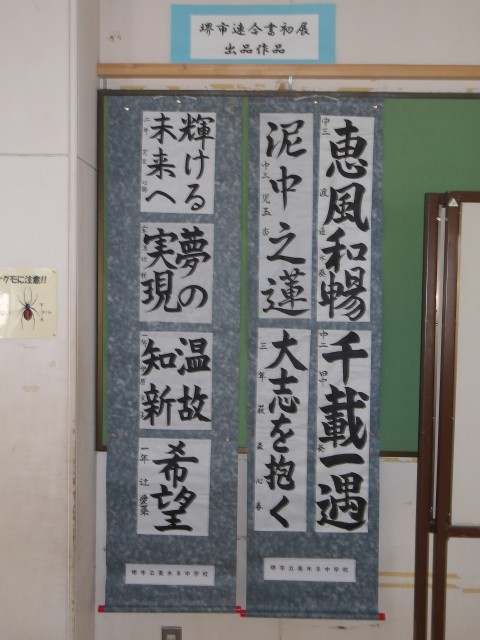 堺市連合書初展
出品作品
恵風和暢
中三
泥中之蓮
中三 児玉
千載一遇
中二
大志を抱く
三年
輝ける
未来へ
二年
夢の
実現
温故
知新
希望
一年 辻 愛菜
グモに注意!!
堺市立美木多中学校
堺市立美木多中学校